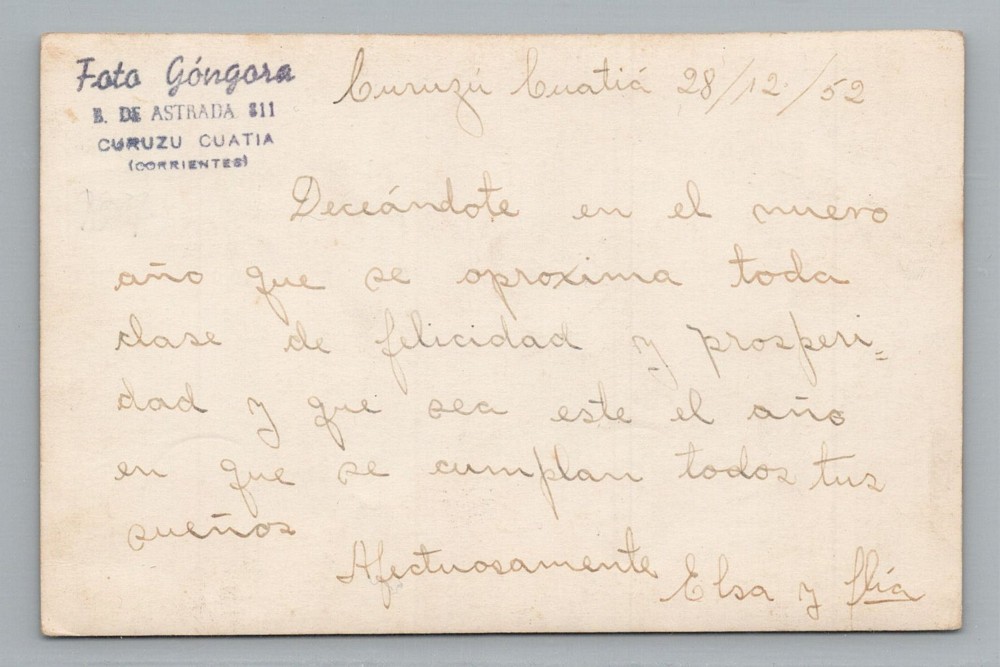 Foto Góngora
B. DE ASTRADA 811
CURUZU CUATIA
(CORRIENTES)
Curuzú Cuatiá 28/12/52
Deceándote en el nuevo
año que se aproxima toda
clase de felicidad y prosperi=
dad y que sea este el año
en que se cumplan todos tus
sueños
Afectuosamente Elsa y